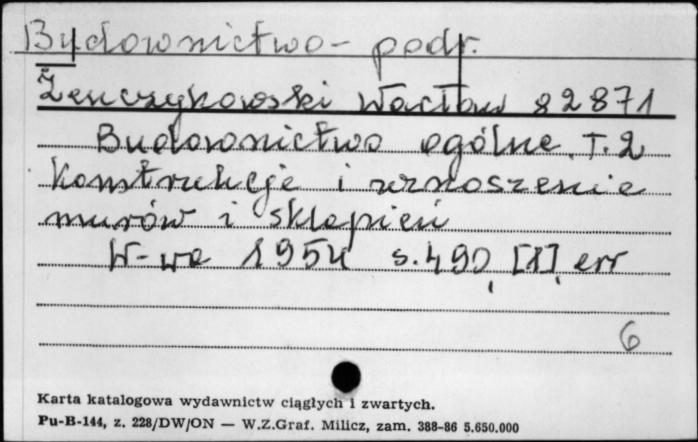 Budownictwo - podr.
Żenczykowski Wacław 82871
Budownictwo ogólne. T. 2
Konstrukcje i wznoszenie
murów i sklepień
W-wa 1954 s. 490, [1], err
6
Karta katalogowa wydawnictw ciągłych i zwartych.
Pu-B-144, z. 228/DW/ON — W.Z.Graf. Milicz, zam. 388-86 5.650.000